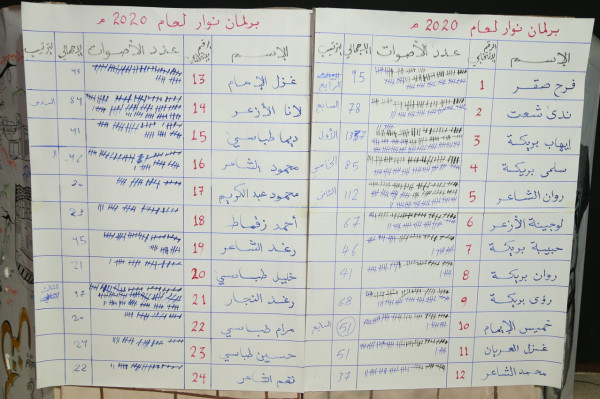 برلمان نوار لعام 2020 م
الإسم الرقم الانتخابي عدد الأصوات الإجمالي الترتيب
فرح صقر 1 95 الرابع
ندى شعت 2 78 السابع
إيهاب بريكة 3 الأول
سلمى بريكة 4 85 الخامس
روان الشاعر 5 112 الثاني
لوجينة الأزعر 6 67
حبيبة بريكة 7 46
روان بريكة 8 41
رؤى بريكة 9 68
خميس الإمام 10 51 السابع
غزل العريان 11 51
محمد الشاعر 12 37
برلمان نوار لعام 2020 م
الإسم الرقم الانتخابي عدد الأصوات الإجمالي الترتيب
غزل الإمام 13
لانا الأزعر 14 84 السادس
ديما طباسي 15 41
محمود الشاعر 16 46
محمود عبد الكريم 17
أحمد 18
رغد الشاعر 19 45
خليل طباسي 20 21
رغد النجار 21 97 الثالث
مرام طباسي 22 20
حسين طباسي 23
نغم الشاعر 24 22